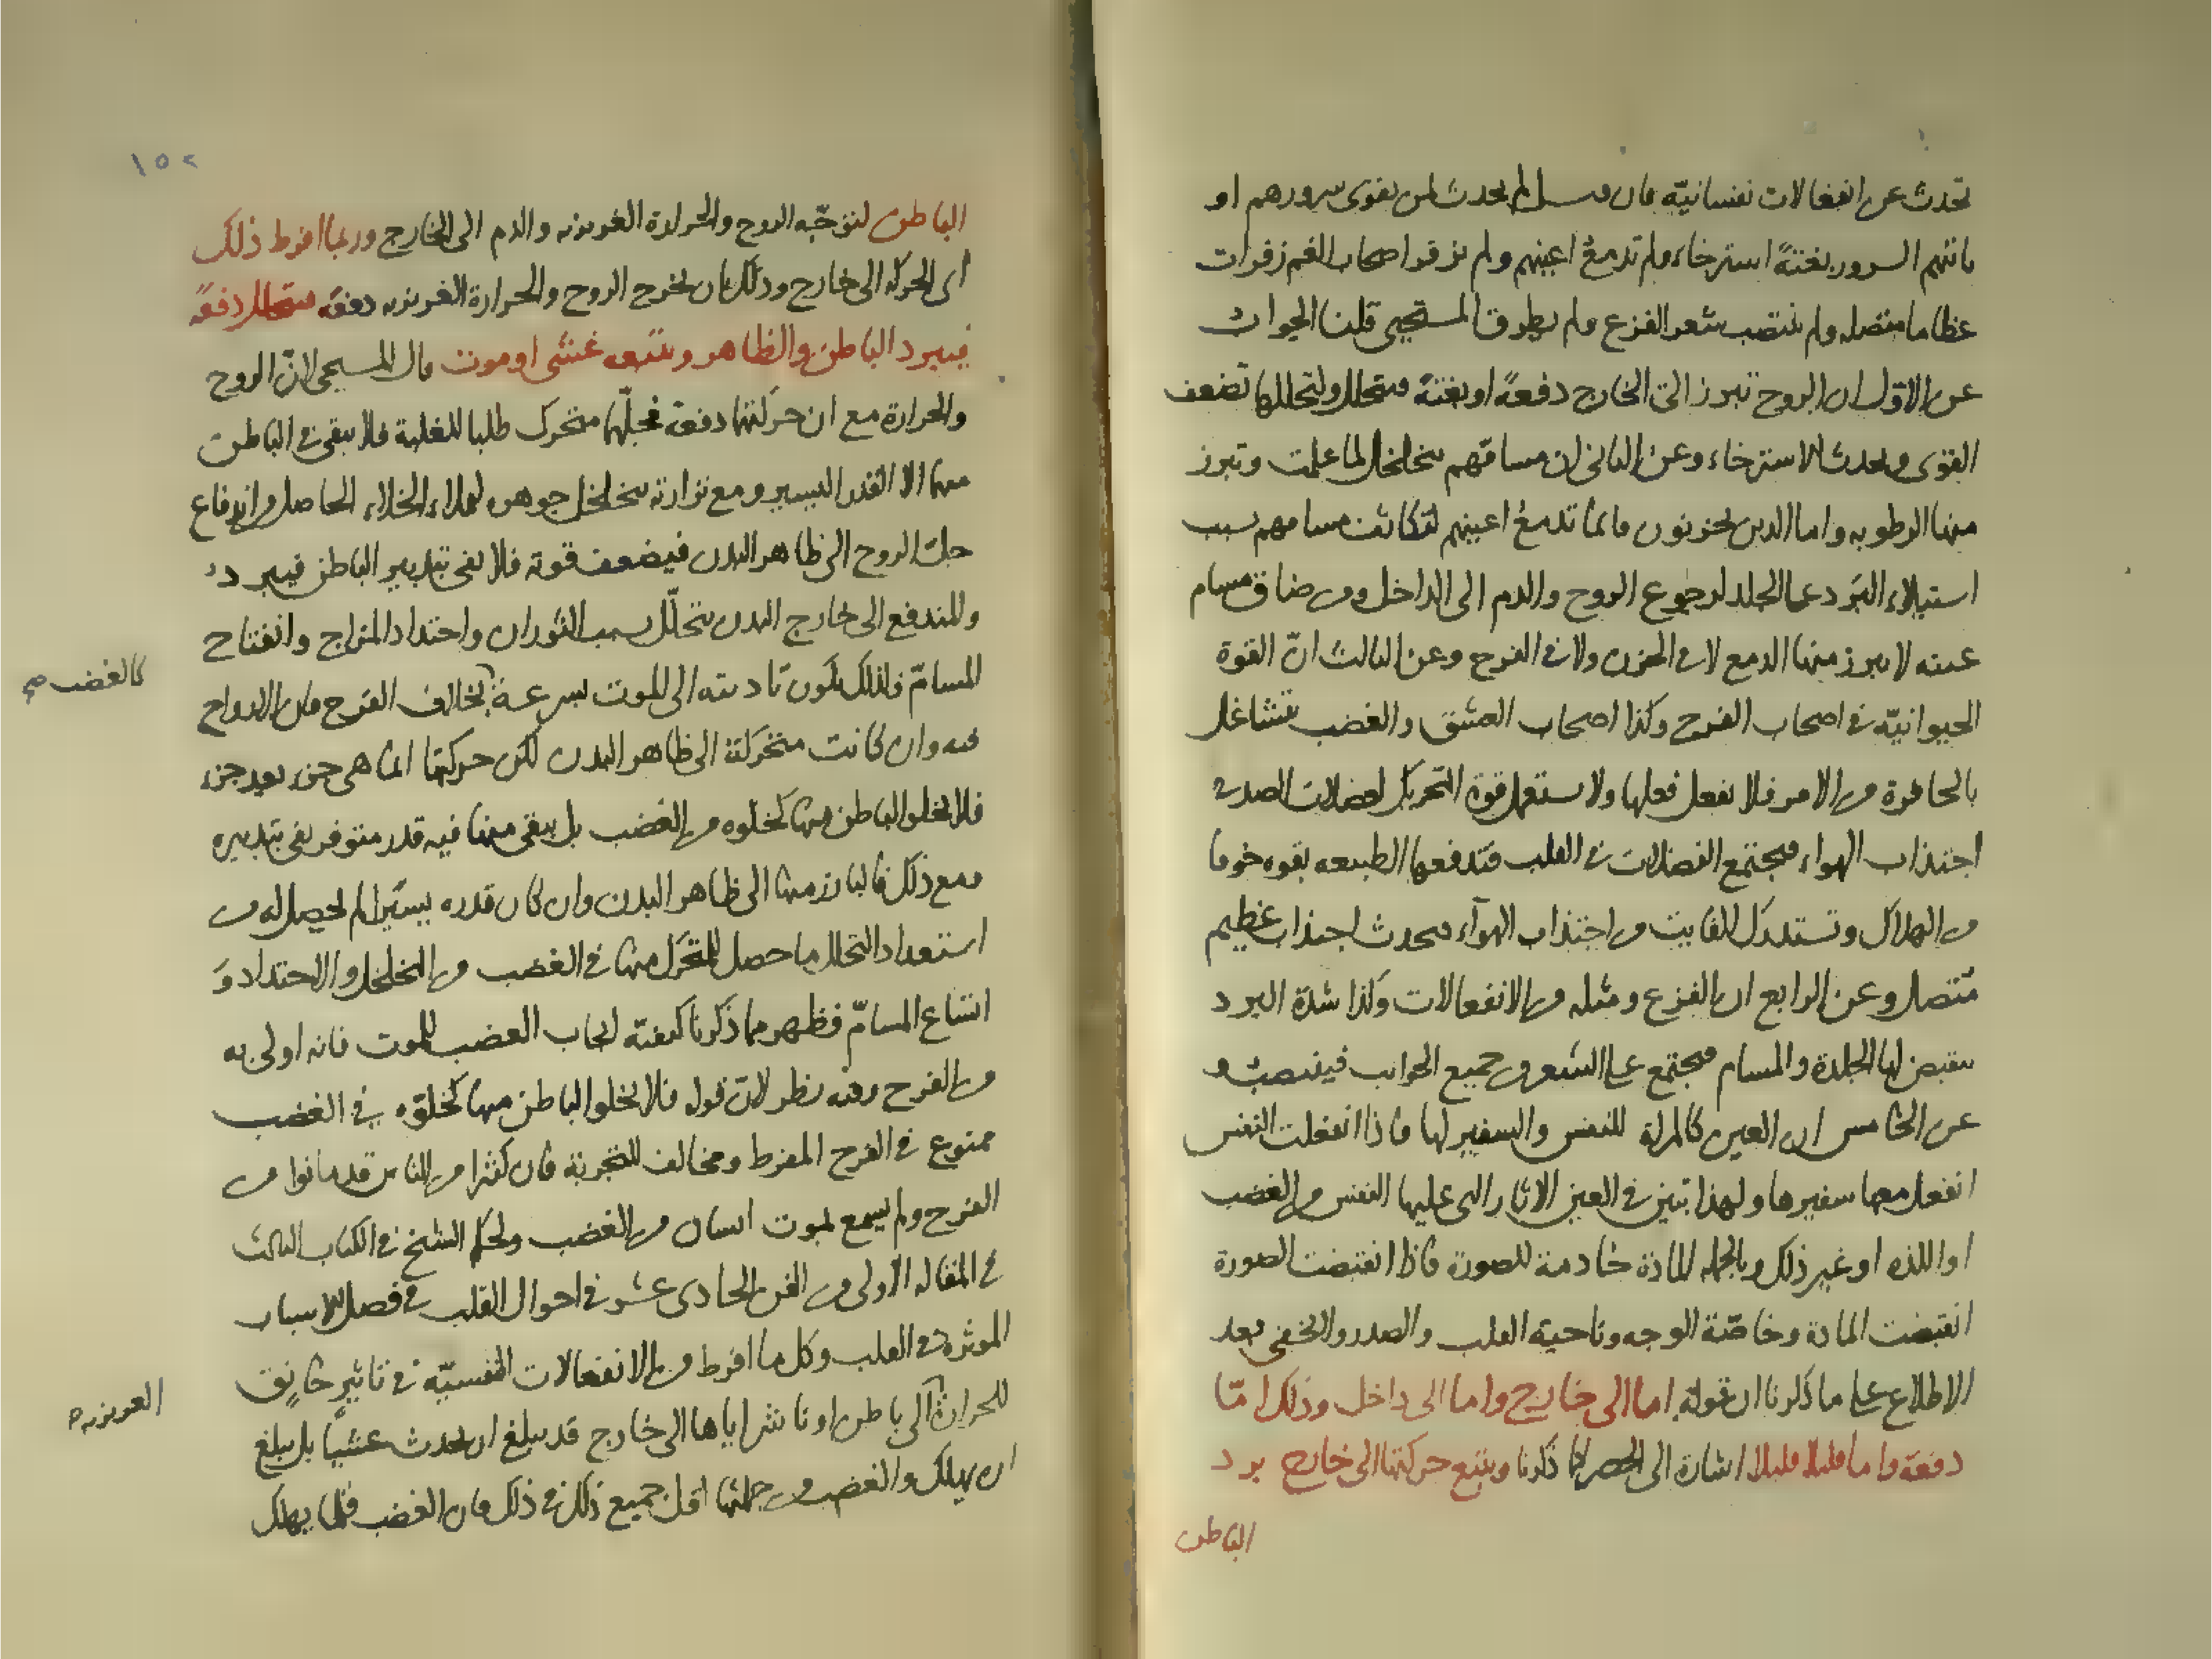 تحدث عن انفعالات نفسانيّة فان قيل لم يحدث لمن يقوى سرورهم او
ياتيهم السرور بغتةً استرخاء ولم تدمعُ اعينهم ولم يزفر اصحاب الغم زفرات
عظاما متصلة ولم ينتصب شعر الفزع ولم يطرق المستحيي قلنا الجواب
عن الاوّل ان الروح تبرز الى الخارج دفعةً او بغتةً فتتحلل ولتحللها تضعف
القوى ويحدث الاسترخاء وعن الثاني ان مسامّهم تتخلخل لما علمت وتبرز
منها الرطوبه واما الذين يحزنون فانما تدمعُ اعينهم لتكاثف مسامهم بسبب
استيلاء البرد على الجلد لرجوع الروح والدم الى الداخل ومن ضاق مسام
عينه لا يبرز منها الدمع لا في الحزن ولا في الفرح وعن الثالث انّ القوة
الحيوانيّة في اصحاب الفرح وكذا اصحاب العشق والغضب تتشاغل
بالحاضرة من الامر فلا تفعل فعلها ولا تستعمل قوة التحريك لعضلات الصدر في
اجتذاب الهواء فيجتمع الفضلات في القلب فتدفعها الطبيعه بقوه خوفا
من الهلاك وتستدرك الفايت من اجتذاب الهوآء فيحدث اجتذاب عظيم
متصل وعن الرابع ان الفزع ومثله من الانفعالات وكذا شدّة البرد
ينقبض لها الجلدة والمسام فيجتمع على الشعر من جميع الجوانب فينتصب و
عن الخامس ان العين كالمرآة للنفس والسفير لها فاذا انفعلت النفس
انفعل معها سفيرها ولهذا تبين في العين الاثار التى عليها النفس من الغضب
او اللذه او غير ذلك وبالجملة المادة خادمة للصورة فاذا انقبضت الصورة
انقبضت المادة وخاصّة الوجه وناحية القلب والصدر ولا يخفى بعد
الاطلاع على ما ذكرنا ان قوله اما الى خارج واما الى داخل وذلك امّا
دفعة واما قليلا قليلا اشارة الى الحصر كما ذكرنا ويتبع حركتها الى خارج برد
الباطن
١٥٢
الباطن لتوجّه الروح والحرارة الغريزيه والدم الى الخارج وربما افرط ذلك
اى الحركه الى خارج وذلك بان يخرج الروح والحرارة الغريزيه دفعة فيتحلل دفعةً
فيبرد الباطن والظاهر ويتبعه غشى او موت قال المسيحى لانّ الروح
والحرارة مع ان حركتها دفعة فمحلّها متحرك طلبا للغلبة فلا يبقى في الباطن
منها الا القدر اليسير ومع نزارته يتخلخل جوهره لملاء الخلاء الحاصل من اندفاع
جلّ الروح الى ظاهر البدن فيضعف قوته فلا يفى بتدبير الباطن فيبرد
والمندفع الى خارج البدن يتحلّل بسبب الثوران واحتداد المزاج وانفتاح
المسامّ فلذلك يكون تاديته الى الموت بسرعة بخلاف الفرح فان الارواح
كالغضب صح
فيه وان كانت متحركة الى ظاهر البدن لكن حركتها انما هى جزء بعد جزء
فلا يخلو الباطن منها كخلوه من الغضب بل يبقى منها فيه قدر متوفر يفى بتدبيره
ومع ذلك فالبارز منها الى ظاهر البدن وان كان قدره يسيرا لم يحصل له من
استعداد التحلل ما حصل للمتحرك منها في الغضب من التخلخل والاحتداد و
اتساع المسامّ فظهر مما ذكرنا كيفيّة ايجاب الغضب للموت فانه اولى به
من الفرح وفيه نظر لانّ قوله فلا يخلو الباطن منها كخلوّه في الغضب
ممنوع في الفرح المفرط ومخالف للتجربة فان كثيرا من الناس قد ماتوا من
الفرح ولم يسمع بموت انسان من الغضب ولحكم الشيخ في الكتاب الثالث
في المقاله الاولى من الفن الحادى عشر في احوال القلب في فصل الاسباب
الموثرة في القلب وكل ما افرط من الانفعالات النفسيّة في تاثير خانق
للحرارة الى باطن او ناشر اياها الى خارج قد يبلغ ان يحدث غشياً بل يبلغ
الغريزيه
ان يهلك والغضب من جملتها اقل جميع ذلك في ذلك فان الغضب قلما يهلك